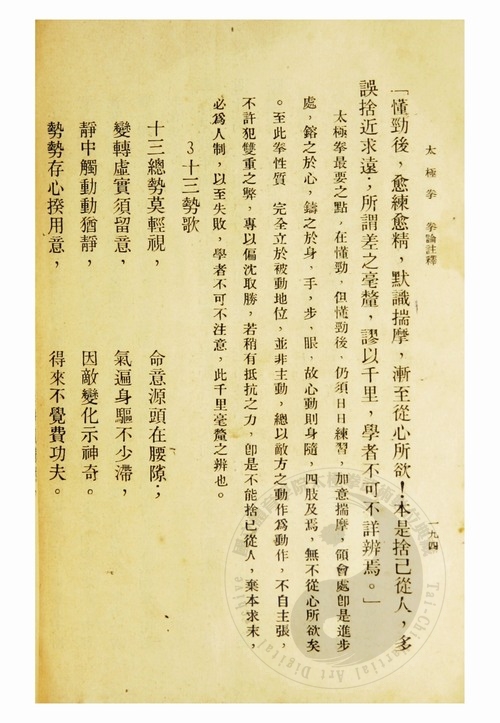 太極拳　拳論註釋
一九四
「懂勁後，愈練愈精，默識揣摩，漸至從心所欲！本是捨己從人，多
誤捨近求遠；所謂差之毫釐，謬以千里，學者不可不詳辨焉。」
太極拳最要之點，在懂勁，但懂勁後，仍須日日練習，加意揣摩，領會處卽是進步
處，鎔之於心，鑄之於身，手，步，眼，故心動則身隨，四肢及焉，無不從心所欲矣
。至此拳性質　完全立於被動地位，並非主動，總以敵方之動作為動作，不自主張，
不許犯雙重之弊，專以偏沈取勝，若稍有抵抗之力，卽是不能捨己從人，棄本求末，
必為人制，以至失敗，學者不可不注意，此千里毫釐之辨也。
3十三勢歌
十三總勢莫輕視，　命意源頭在腰隙；
變轉虛實須留意，　氣遍身軀不少滯，
靜中觸動動猶靜，　因敵變化示神奇。
勢勢存心揆用意，　得來不覺費功夫。
Tai-Ch
Martial Art Digital